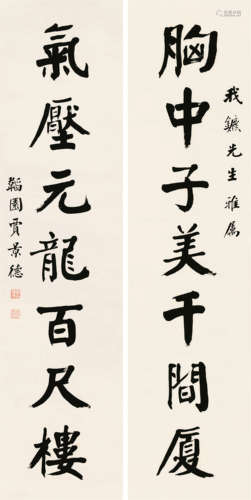 我鐮先生雅屬
胸中子美千間廈
氣壓元龍百尺樓
韜園賈景德